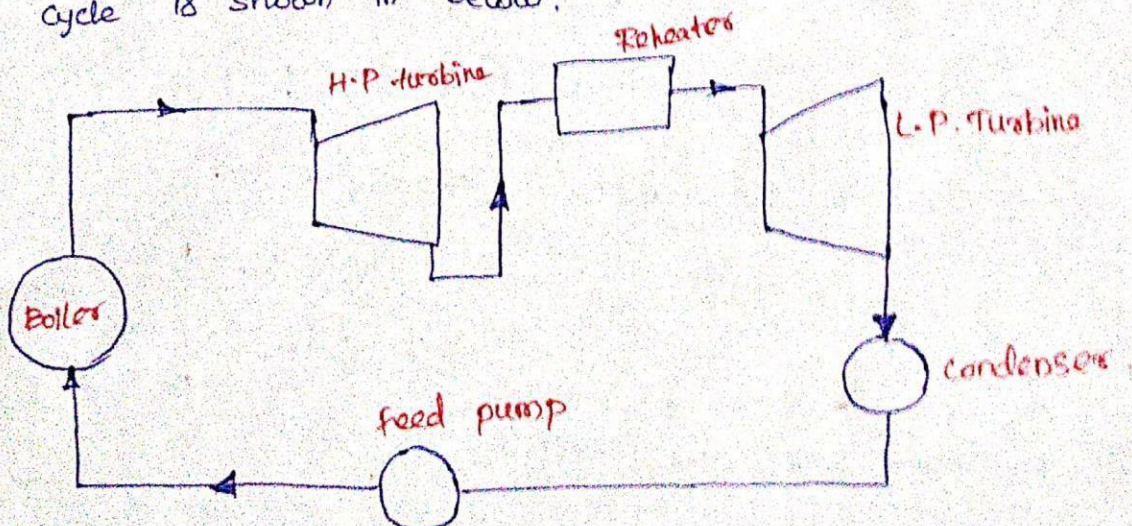 cycle is shown in below.
Reheater
H.P turbine
L.P. Turbine
Boiler
Condenser
feed pump